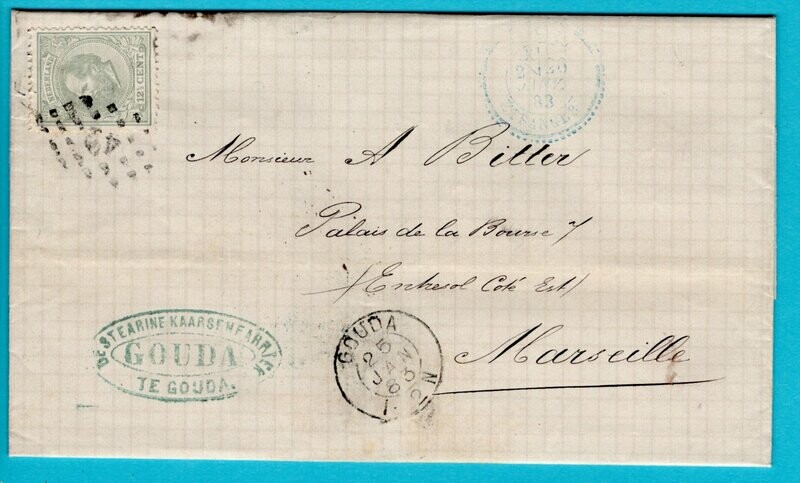 NEDERLAND
12½ CENT
83
ETRANGER
Monsieur A Bitter
Palais de la Bourse 7
(Entresol Coté Est)
Marseille
DE STEARINE KAARSENFABRIEK
GOUDA
TE GOUDA.
GOUDA